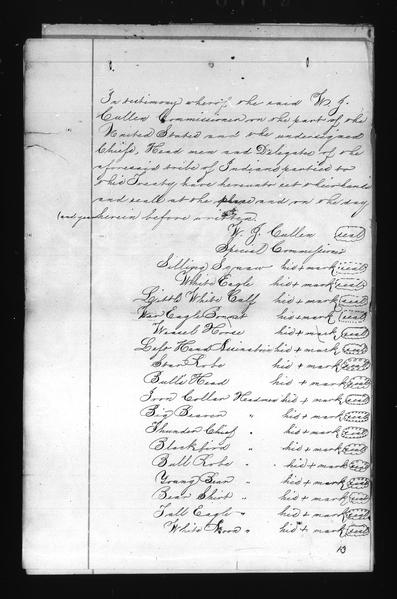 In testimony whereof the said W. J.
Cullen Commissioner on the part of the
United States and the undersigned
Chiefs, Head men and Delegates of the
aforesaid tribe of Indians parties to
this Treaty have hereunto set their hands
and seals at the place and on the day
(and year herein before written.
W. J. Cullen seal
Special Commissioner
Squaw his + mark seal
White Eagle his + mark seal
Little White Calf his + mark seal
War Eagle Bonnet his + mark seal
Weasel Horse his + mark seal
his + mark seal
Star Robe his + mark seal
Bull's Head his + mark seal
Iron Collar Headmen his + mark seal
Big Beaver " his + mark seal
Thunder Chief " his + mark seal
Blackbird " his + mark seal
Bull Robe " his + mark seal
Young Bear " his + mark seal
Bear Shirt " his + mark seal
Tall Eagle " his + mark seal
White " his + mark seal
13